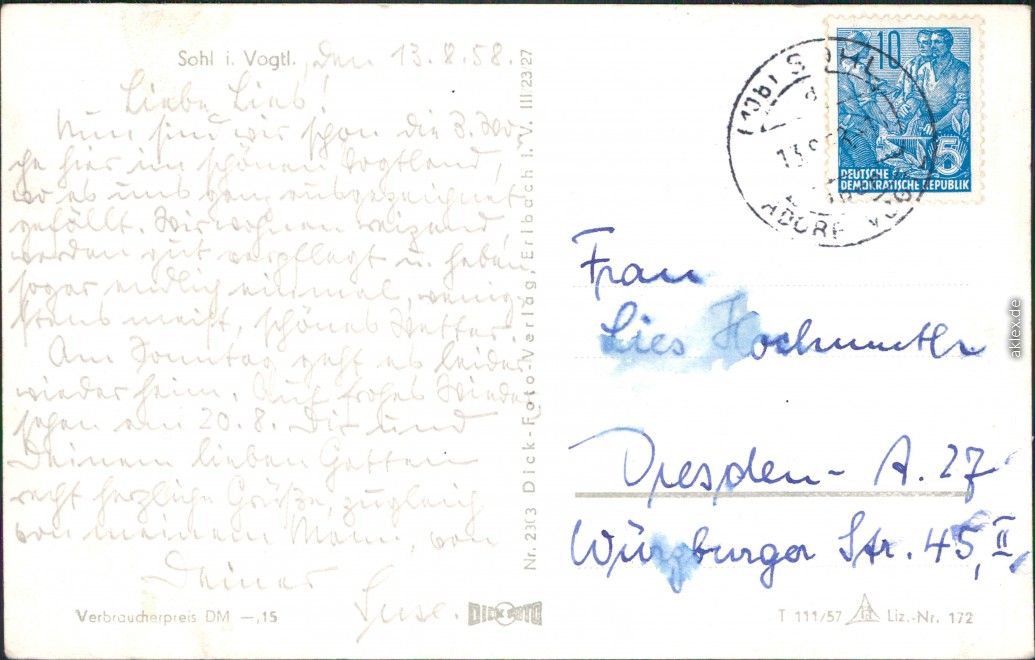 Sohl i. Vogtl., den 13.8.58.
Liebe Lies!
Nun sind wir schon die 3. Wo-
che hier im schönen Vogtland,
wo es uns ganz ausgezeichnet
gefällt. Wir wohnen reizend,
werden gut verpflegt u. haben
sogar endlich einmal, wenig-
stens meist, schönes Wetter.
Am Sonntag geht es leider
wieder heim. Auf frohes Wieder-
sehen am 20.8. Dir und
Deinem lieben Gatten
recht herzliche Grüße, zugleich
von meinem Mann, von
Deiner
Suse.
Verbraucherpreis DM —,15
DICK FOTO
Nr. 2303 Dick-Foto-Verlag, Erlbach i. V. III 23 27
10
+5
DEUTSCHE
DEMOKRATISCHE REPUBLIK
ADORF
Frau
Lies
Dresden- A. 27
Würzburger Str. 45, II
T 111/57 Liz.-Nr. 172
aklex.de